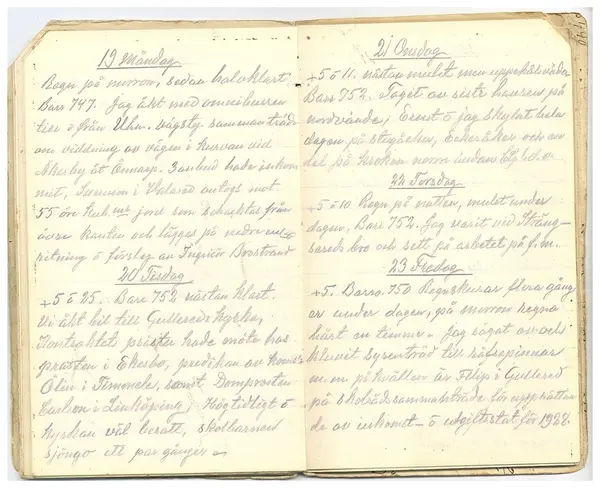 19 Måndag
Regn på morron, sedan halvklart.
Bar. 747. Jag åkt med omnibussen
till o från Uhn. vägsty. sammanträde
om viddning av vägen i kurvan vid
åt 3 anbud hade inkom
mit, Svensson i antogs mot
55 öre kub. mr jord som schacktas från
övre kanten och lägges på nedre enl.
ritning o förslag av Ingniör Boostrand
20 Tisdag
+5 o 25. Bar. 752 nästan klart.
Vi åkt bil till Gullereds Kyrka,
Kontrakts prästen hade möte hos
prosten i Ekesbo, predikan av
Olin i Timmele, samt Domprosten
Carlson i Linköping, Högtidligt o
kyrkan väl besatt, skolbarnen
sjöngo ett par gånger
21 Onsdag
+5 o 11. nästan mulet men uppehållsväder
Bar. 752. Taget av siste havren på
nordvände, Ernst o jag skyflat hela
dagen på stegåcker, Ekeråker och en
del på kroken norra
22 Torsdag
+5 o 10 Regn på natten, mulet under
dagen, Bar. 752. Jag varit vid Stång-
sereds bro och sett på arbetet på f.m.
23 Fredag
+5. Baro. 750 Regnskurar flera gång
er under dagen, på morron regna
hårt en timme. Jag sågat av och
kluvit syrenträd till räfsepinnar
m.m. på kvällen är Filip i Gullered
på skolrådssammanträde för upprättan
de av inkomst- o utgiftsstat för 1928.